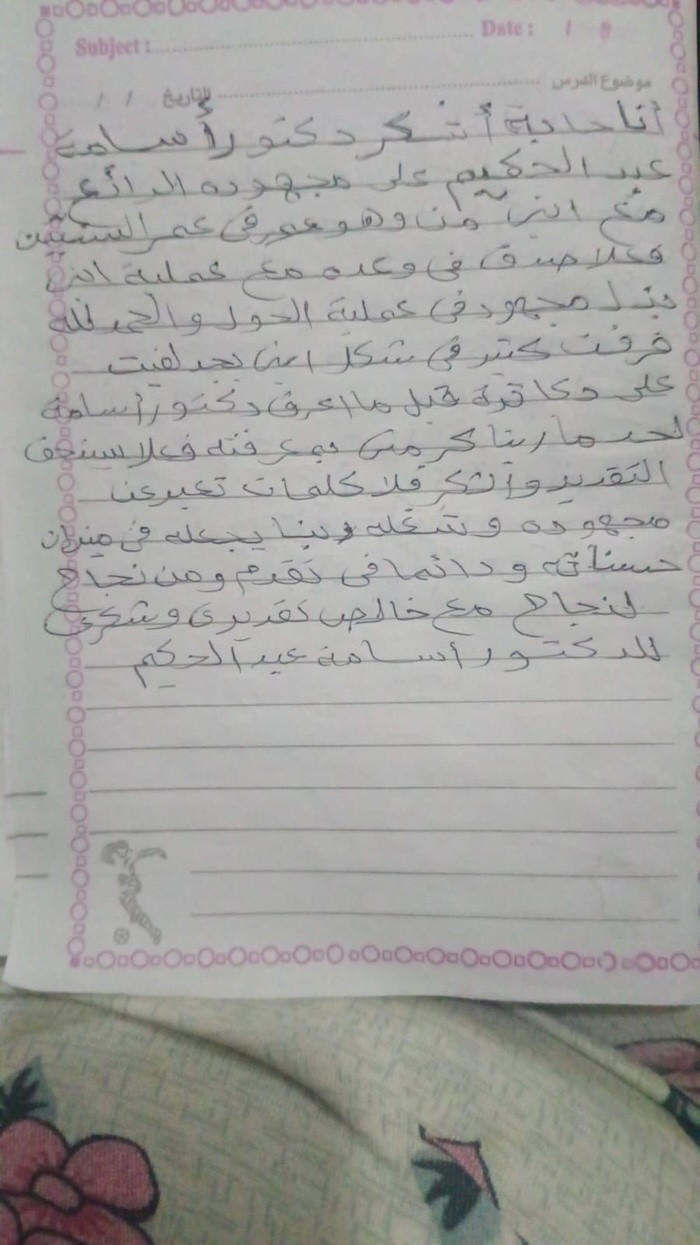 Subject : Date : / /
موضوع الدرس التاريخ / /
أنا حابة أشكر دكتور أسامة
عبد الحكيم على مجهوده الرائع
مع ابنى وهو فى عمر السنتين
فعلا صدق فى وعده مع عملية ابنى
بذل مجهود فى عملية الحول والحمد لله
فرقت كتير فى شكل ابنى بعد لفيت
على دكاترة قبل ما اعرف دكتور أسامة
لحد ما ربنا كرمنى بمعرفته فعلا يستحق
التقدير والشكر فلا كلمات تعبر عن
مجهوده وشغله ربنا يجعله فى ميزان
حسناته ودائما فى تقدم ومن نجاح
لنجاح مع خالص تقديرى وشكرى
للدكتور أسامة عبد الحكيم